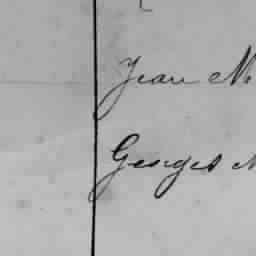 Jean
Georges